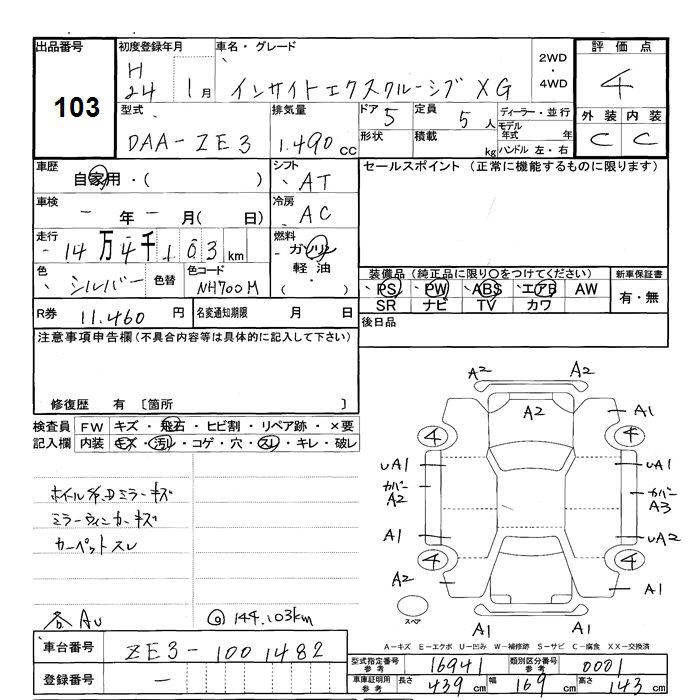 出品番号
103
初度登録年月
H
24 1月
車名・グレード
インサイトエクスクルーシブ XG
2WD
・
4WD
評価点
4
外装 内装
C C
型式
DAA-ZE3
排気量
1.490 CC
ドア 5
定員 5人
形状
積載 kg
ディーラー・並行
モデル年式 年
ハンドル 左・右
車歴
自家用・( )
シフト
AT
セールスポイント (正常に機能するものに限ります)
車検
ー 年 ー 月( 日)
冷房
AC
走行
14万4千103 km
燃料
ガソリン
軽油
・
( )
色
シルバー
色替
色コード
NH700M
装備品 (純正品に限り○をつけてください)
PS PW ABS エアB AW
SR ナビ TV カワ
新車保証書
有・無
R券 11.460 円
名変通知期限 月 日
後日品
注意事項申告欄(不具合内容等は具体的に記入して下さい)
修復歴 有 〔箇所 〕
検査員
記入欄
FW キズ・飛石・ヒビ割・リペア跡・×要
内装 キズ・汚レ・コゲ・穴・スレ・キレ・破レ
ミラーウィンカーキズ
カーペットスレ
各AU
144.103km
A2 A2
A2
A1
4 4
UA1 UA1
カバー
A2
カバー
A3
A1 UA2
4 4
A2 A1
スペア
A1 A1
A-キズ E-エクボ U-凹み W-補修跡 S-サビ C-腐食 XX-交換済
車台番号 ZE3-1001482
登録番号 ー
型式指定番号
参考
16941
類別区分番号
参考
0001
車庫証明用
参考
長さ 439 cm 幅 169 cm 高さ 143 cm